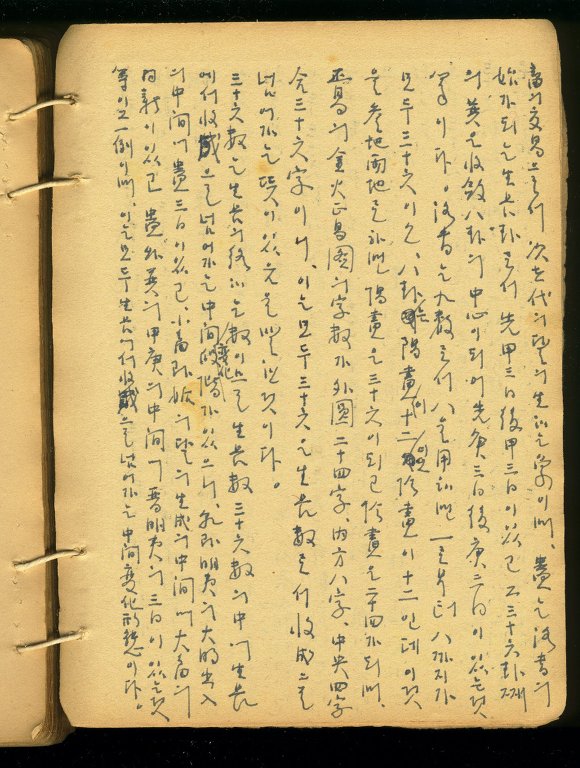 畜의 交易으로서 次世代의 달의 生하는 象이며, 蠱는 洛書의
始가되는 生長卦로서 先甲三日後甲三日이 있고 又三十六卦째
의 巽은 收斂八卦의 中心이 되어 先庚三日後庚三日이 있는것
이다。洛書는 九數로서 八을 用하면 一로부터 八까지가
모두 三十六이오, 八卦는 陽畫이 十二 陰畫이 十二인데 이것
을 參地兩地로 하면 陽畫은 三十六이되고 陰畫은 二十四가 되며,
正易의 金火正易圖의 字數가 外圓 二十四字, 內方 八字, 中央 四字
合三十六字이니, 이는 모두 三十六은 生長數로서 收成으로
넘어가는 뜻이 있음을 말한것이다。
三十六數는 生長의 終하는 數이므로 生長數 三十六數의 中에 生長
에서 收藏으로 넘어가는 中間變化 段階가 있으니, 明夷의 大明出入
의 中間에 蠱三日이 있고, 小畜 의 달의 生成의 中間에 大畜의
日新이 있고 蠱와 巽의 甲庚의 中間에 晋明夷의 三日이 있는것
等이 그 一例이며, 이는 모두 生長에서 收藏으로 넘어가는 中間變化形態이다。